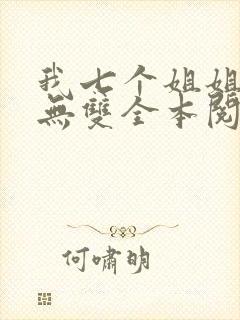 我七个姐姐
無雙全本閱
何嘯明